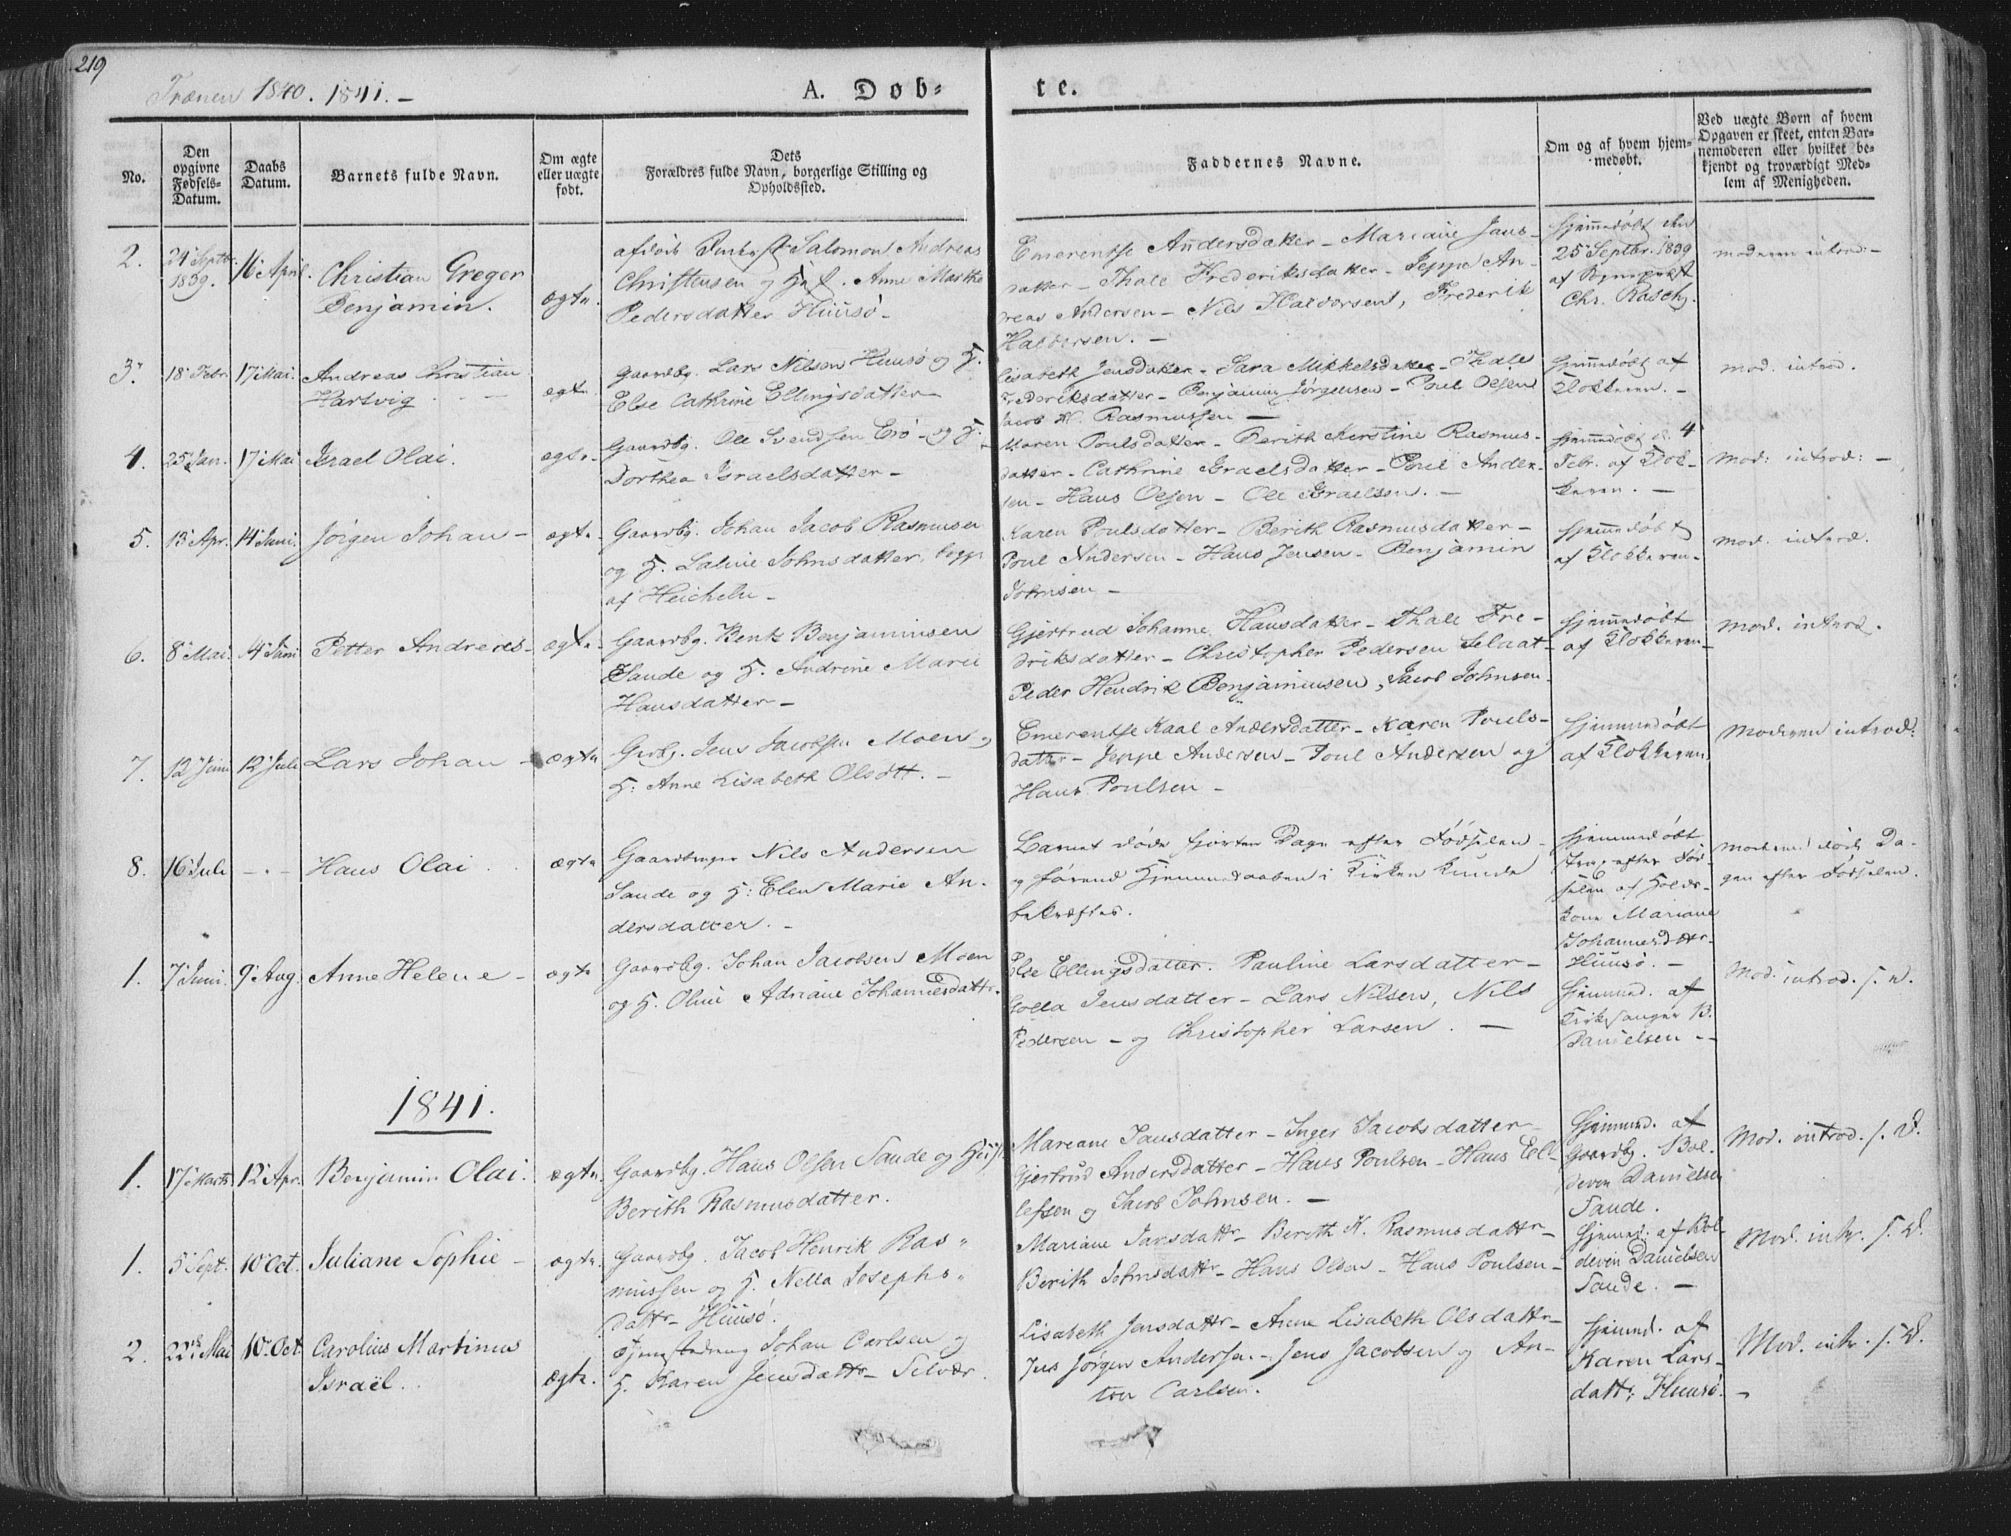 219
Trænen 1840. 1841. –
A. Døb-
te.
No.
Den opgivne Fødsels-Datum.
Daabs Datum.
Barnets fulde Navn.
Om ægte eller uægte født.
Dets Forældres fulde Navn, borgerlige Stilling og Opholdssted.
Faddernes Navne.
Om og af hvem hjemmedøbt.
Ved uægte Børn af hvem Opgaven er skeet, enten Barnemoderen eller hvilket bekjendt og troværdigt Medlem af Menigheden.
2. 24 Septbr 1839. 16 April.
Christian Greger
Benjamin.
ægte.
Salomon Andreas
Christensen og Anne Marthe
Pedersdatter Huusø –
Emerentse Andersdatter – Mariane Jans-
datter – Thale Frederiksdatter – Jeppe An-
dreas Andersen – Nils Haldorsen, Frederik
Haldorsen. –
Hjemmedøbt den
25 Septbr. 1839
af
Chr. Rasch.
moderen introd: –
3. 18 Febr. 17 Mai. Andreas Christian
Hartvig
ægte.
Gaardbg. Lars Nilsen Huusø og H.
Else Cathrine Ellingsdatter –
Lisabeth Jensdatter – Sara Mikkelsdatter – Thale
Frederiksdatter – Benjamin Jørgensen – Poul Olsen
Jacob H. Rasmussen –
Hjemmedøbt af
Klokkeren. –
mod. introd.
4. 25 Jan. 17 Mai Israel Olai.
ægte.
Gaardbg. Ole Svendsen og H.
Dorthea Israelsdatter –
Maren Poulsdatter – Berith Kerstine Rasmus-
datter – Cathrine Israelsdatter – Poul Ander-
sen – Hans Olsen – Ole Israelsen. –
Hjemmedøbt d. 4
Febr. af Klok-
keren. –
mod: introd: –
5. 13 Apr. 14 Juni. Jørgen Johan –
ægte.
Gaardbg. Johan Jacob Rasmusen
og H. Laline Johnsdatter, begge
af
Karen Poulsdatter – Berith Rasmusdatter –
Poul Andersen – Hans Jensen – Benjamin
Johnsen –
Hjemmedøbt
af Klokkeren –
mod. introd.
6. 8 Mai. 14 Juni Petter Andreas –
ægte.
Gaardbg. Bent Benjaminsen
Sande og H. Andrine Marie
Hansdatter –
Gjertrud Johanne Hansdatter – Thale Fre-
driksdatter – Christopher Pedersen Selaat –
Peder Hendrik Benjaminsen, Jacob Johnsen.
Hjemmedøbt
af Klokkeren –
mod. introd.
7. 12 Juni 12 Juli Lars Johan –
ægte
Grbg. Jens Jacobsen Moen og
H. Anne Lisabeth Olsdtt. –
Emerentse Kaal Andersdatter – Karen Pouls-
datter – Jeppe Andersen – Poul Andersen og
Hans Poulsen –
Hjemmedøbt
af Klokkeren.
moderen introd.
8. 16 Juli – . – Hans Olai.
ægte
Gaardbruger Nils Andersen
Sande og H: Elen Marie An-
dersdatter. –
Barnet døde fjorten Dage efter Fødselen –
og førend Hjemmedaaben i Kirken kunde
bekræftes.
Hjemmedøbt
strax efter Fød-
selen af
kone Mariane
Johannesdtr.
Huusø. –
moderen døde Da-
gen efter Fødselen.
1. 7 Juni. 9 Aug. Anne Helene –
ægte
Gaardbg. Johan Jacobsen Moen
og H. Oline Adriane Johannesdattr.
Else Ellingsdatter. Pauline Larsdatter –
Golla Jensdatter – Lars Nilsen, Nils
Pedersen – og Christopher Larsen. –
Hjemmed. af
Kirkesanger B.
Danielsen –
Mod. introd. s. d.
1841.
1. 17 Marts 12 Apr. Benjamin Olai.
ægte.
Gaardbg. Hans Olsen Sande og
Berith Rasmusdatter.
Mareane Jansdatter – Inger Jacobsdatter –
Gjertrud Andersdatter – Hans Poulsen – Hans El-
lefsen og Jacob Johnsen. –
Hjemmed. af
Gaardbg. Bal-
deven Danielsen
Sande.
Mod. introd. s. d.
1. 5 Sept. 10 Oct. Juliane Sophie –
ægte.
Gaardbg. Jacob Henrik Ras-
mussen og H. Nella Josephs-
dattr – Huusø.
Mariane Jansdattr – Berith K. Rasmusdattr –
Berith Johnsdattr – Hans Olsen – Hans Poulsen –
Hjemmed. af Bal-
deven Danielsen
Sande. –
Mod. intr. s. d.
2. 22 Mai 10 Oct. Carolius Martinus
Israël.
ægte.
Johan Carlsen og
H. Karen Jensdattr – Selvær.
Lisabeth Jensdattr – Anne Lisabeth Olsdattr –
Jens Jørgen Andersen – Jens Jacobsen og An-
ton Carlsen.
Hjemmed. af
Karen Lars-
dattr, Huusø. –
Mod. intr. s. d.